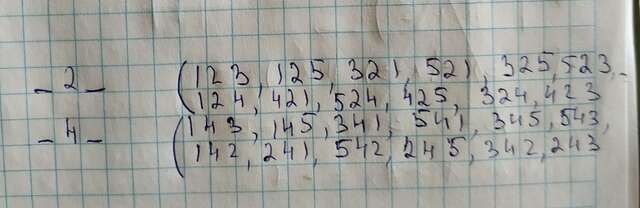 _ 2 _ (123, 125, 321, 521, 325, 523,
124, 421, 524, 425, 324, 423
_ 4 _ (143, 145, 341, 541, 345, 543,
142, 241, 542, 245, 342, 243